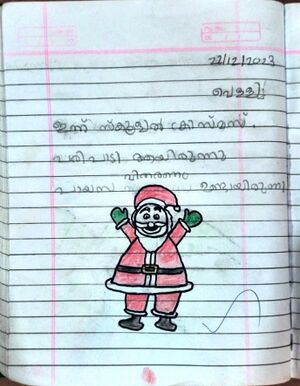 22/12/2023
വെള്ളി
ഇന്ന് സ്കൂളിൽ ക്രിസ്മസ്
പരിപാടി ആയിരുന്നു
വിതരണം
പായസ ഉണ്ടായിരുന്നു